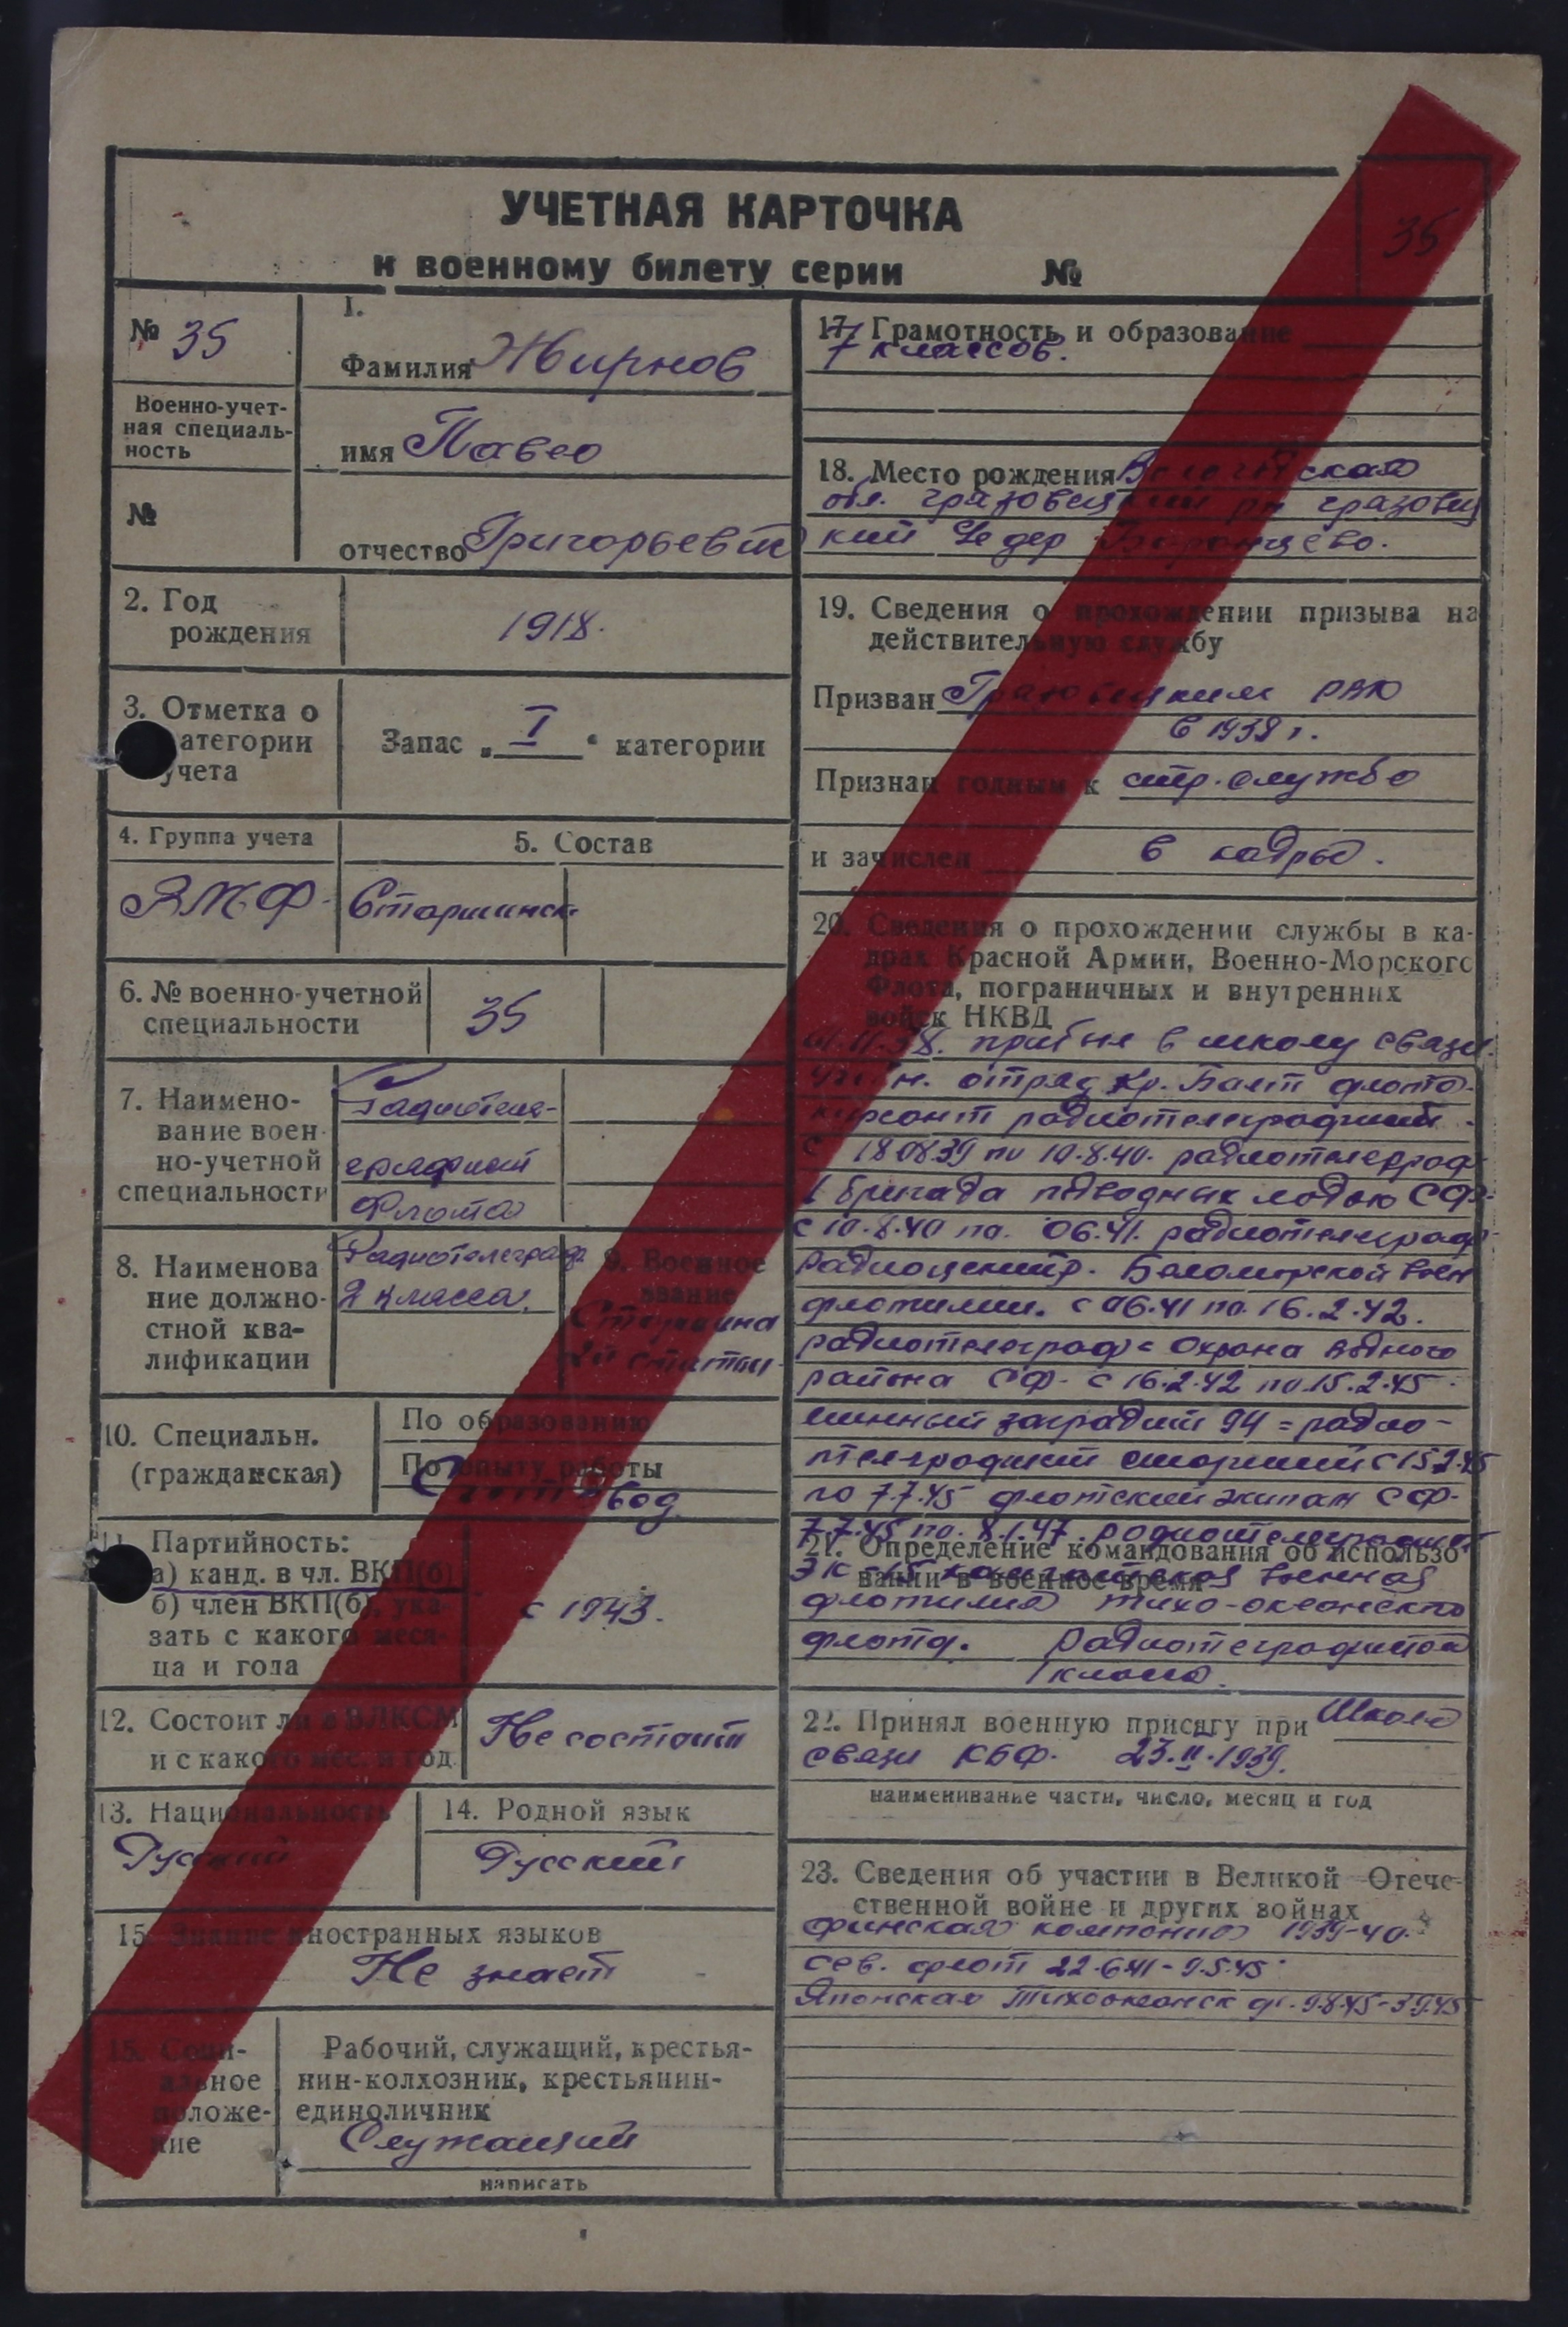 УЧЕТНАЯ КАРТОЧКА
к военному билету серии №
35
№ 35
Военно-учет-
ная специаль-
ность
№
1.
Фамилия Жирнов
имя Павел
отчество Григорьевич
2. Год
рождения
1918.
3. Отметка о
категории
учета
Запас „ I “ категории
4. Группа учета
ВМФ
5. Состав
Старшинск
6. № военно-учетной
специальности
35
7. Наимено-
вание воен-
но-учетной
специальности
Радиотеле-
графист
Флота
8. Наименова
ние должно-
стной ква-
лификации
Радиотелеграф
2 класса.
9. Военное
звание
Старшина
2й статьи
10. Специальн.
(гражданская)
По образованию
По опыту работы
11. Партийность:
а) канд. в чл. ВКП(б)
б) член ВКП(б), ука-
зать с какого меся-
ца и года
с 1943.
12. Состоит ли в ВЛКСМ
и с какого мес. и год.
Не состоит
13. Национальность
Русский
14. Родной язык
Русский
15. Знание иностранных языков
Не знает
16. Соци-
альное
положе-
ние
Рабочий, служащий, крестья-
нин-колхозник, крестьянин-
единоличник
Служащий
написать
17. Грамотность и образование
7 классов.
18. Место рождения Вологодская
обл. грязовецкий рн грязовец
кий дер
19. Сведения о прохождении призыва на
действительную службу
Призван Грязовецким РВК
в 1938 г.
Признан годным к стр. службе
и зачислен в кадры.
20. Сведения о прохождении службы в ка-
драх Красной Армии, Военно-Морского
Флота, пограничных и внутренних
войск НКВД
прибыл в школу связи.
отряд Кр. Балт флота
курсант радиотелеграфист.
с 18 08 39 по 10.8.40. радиотелеграф
бригада подводных лодок СФ.
с 10.8.40 по 06.41. радиотелеграф
радиоцентр. Беломорской воен
флотилии. с 06.41 по 16.2.42.
радиотелеграф = Охрана водного
района СФ- с 16.2.42 по 15.2.45.
минный заградит 94 = радио-
телеграфист старший с 15.2.45
по 7.7.45 флотский экипаж СФ-
7.7.45 по. 8.1.47. радиотелеграфист
21. Определение командования об использо
вании в военное время
военная
флотилия тихо-океанского
флота. радиотелеграфистом
1 класса.
22. Принял военную присягу при Школе
связи КБФ. 23.II.1939.
наименивание части, число, месяц и год
23. Сведения об участии в Великой Отече-
ственной войне и других войнах
финская компания 1939-40.
сев. флот 22.6.41-9.5.45
Японская Тихоокеанск фл. 9.8.45-3.9.45